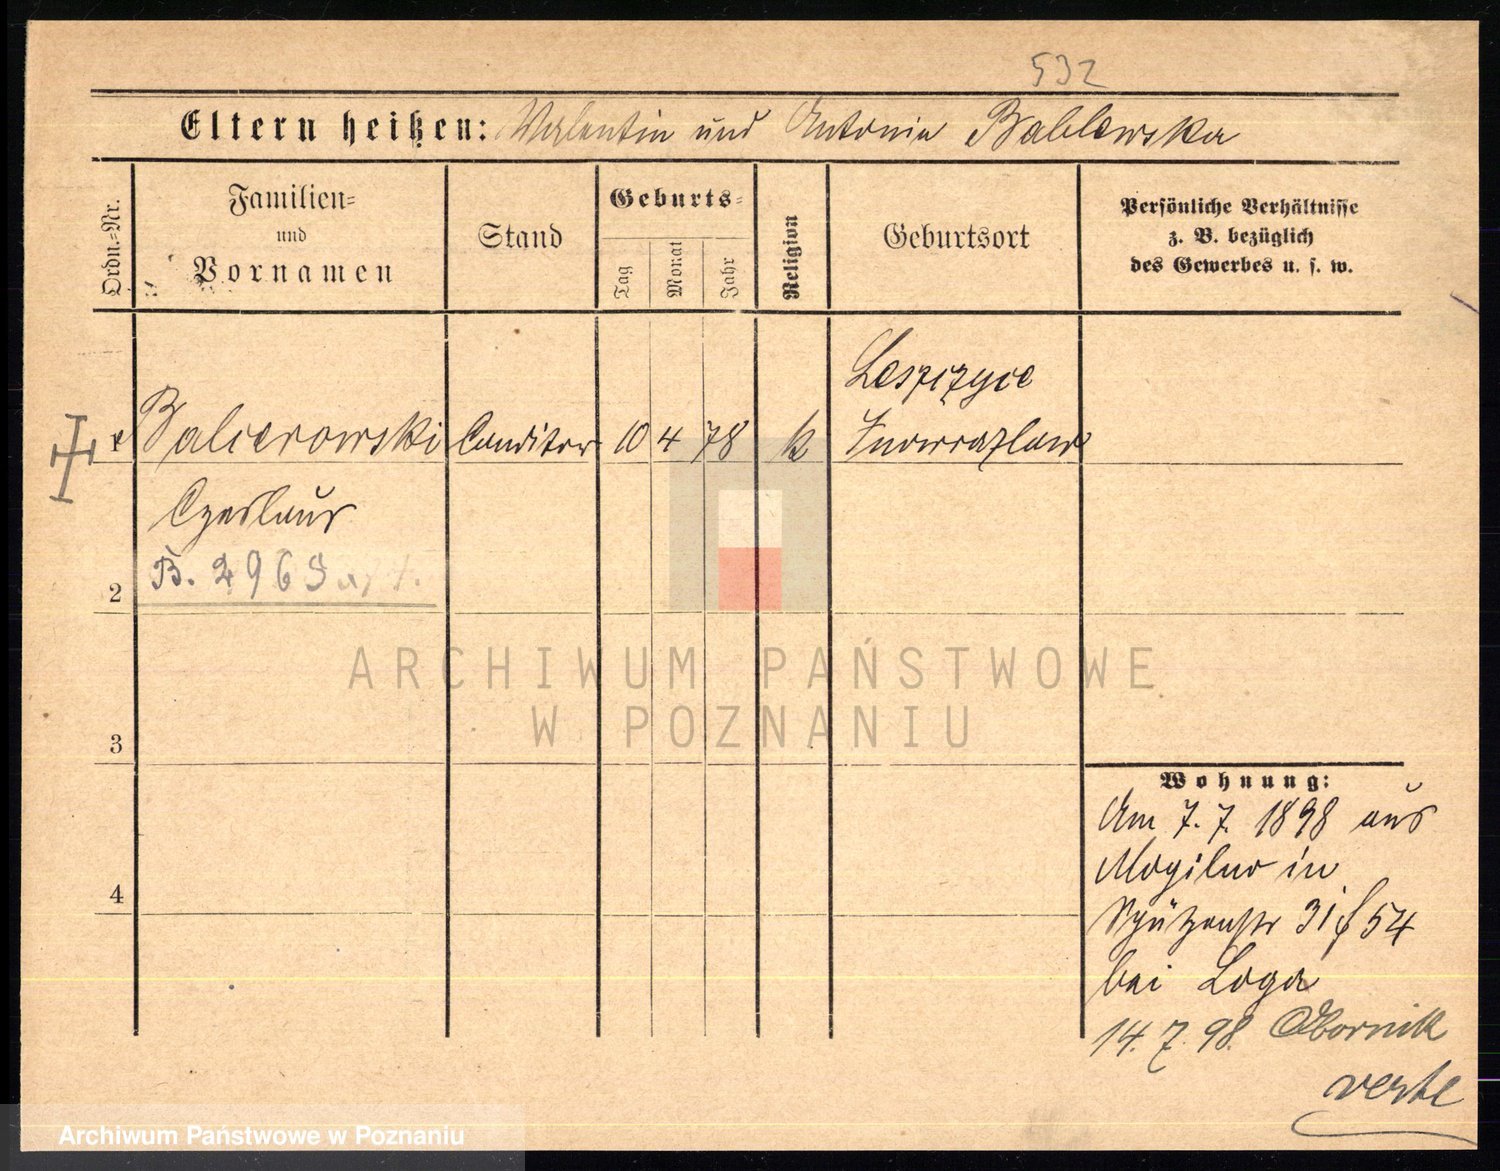 532
Eltern heißen: Valentin und Antonia Bablewska
Ordn.-Nr.
Familien-
und
Vornamen
Stand
Geburts-
Tag
Monat
Jahr
Religion
Geburtsort
Persönliche Verhältnisse
z. B. bezüglich
des Gewerbes u. s. w.
Leszczyce
1 Balcerowski Conditor 10 4 78 k Inowrazlaw
Czeslaus
B. 2969
2
ARCHIWUM PAŃSTWOWE
W POZNANIU
3
4
Wohnung:
Am 7.7. 1898 aus
Mogilno in
Schützenstr 31 f 54
bei Loga
14.7.98. Obornik
verte
Archiwum Państwowe w Poznaniu